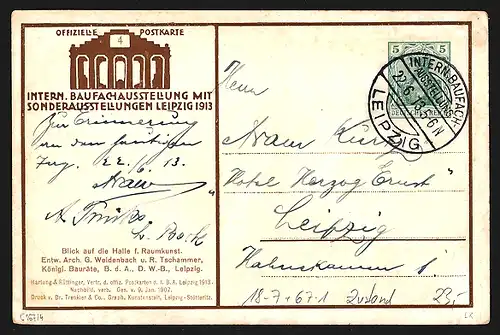 OFFIZIELLE POSTKARTE
4
INTERN. BAUFACHAUSSTELLUNG MIT
SONDERAUSSTELLUNGEN LEIPZIG 1913
Zur Erinnerung
an den heutigen
Tag. 22./6.13.
Blick auf die Halle f. Raumkunst.
Entw. Arch. G. Weidenbach u. R. Tschammer,
Königl. Bauräte, B. d. A., D. W.-B., Leipzig.
Hartung & Rüttinger, Vertr. d. offiz. Postkarten d. I. B. A. Leipzig 1913.
Nachbild. verb. Ges. v. 9. Jan. 1907.
Druck v. Dr. Trenkler & Co., Graph. Kunstanstalt, Leipzig-Stötteritz.
5 5
INTERN. BAUFACH
AUSSTELLUNG
22.6.13. 6N
LEIPZIG
Herrn
Adam
Hotel Herzog Ernst"
Leipzig
Hahnekamm 1
18-7+67.1 Zustand 23,-